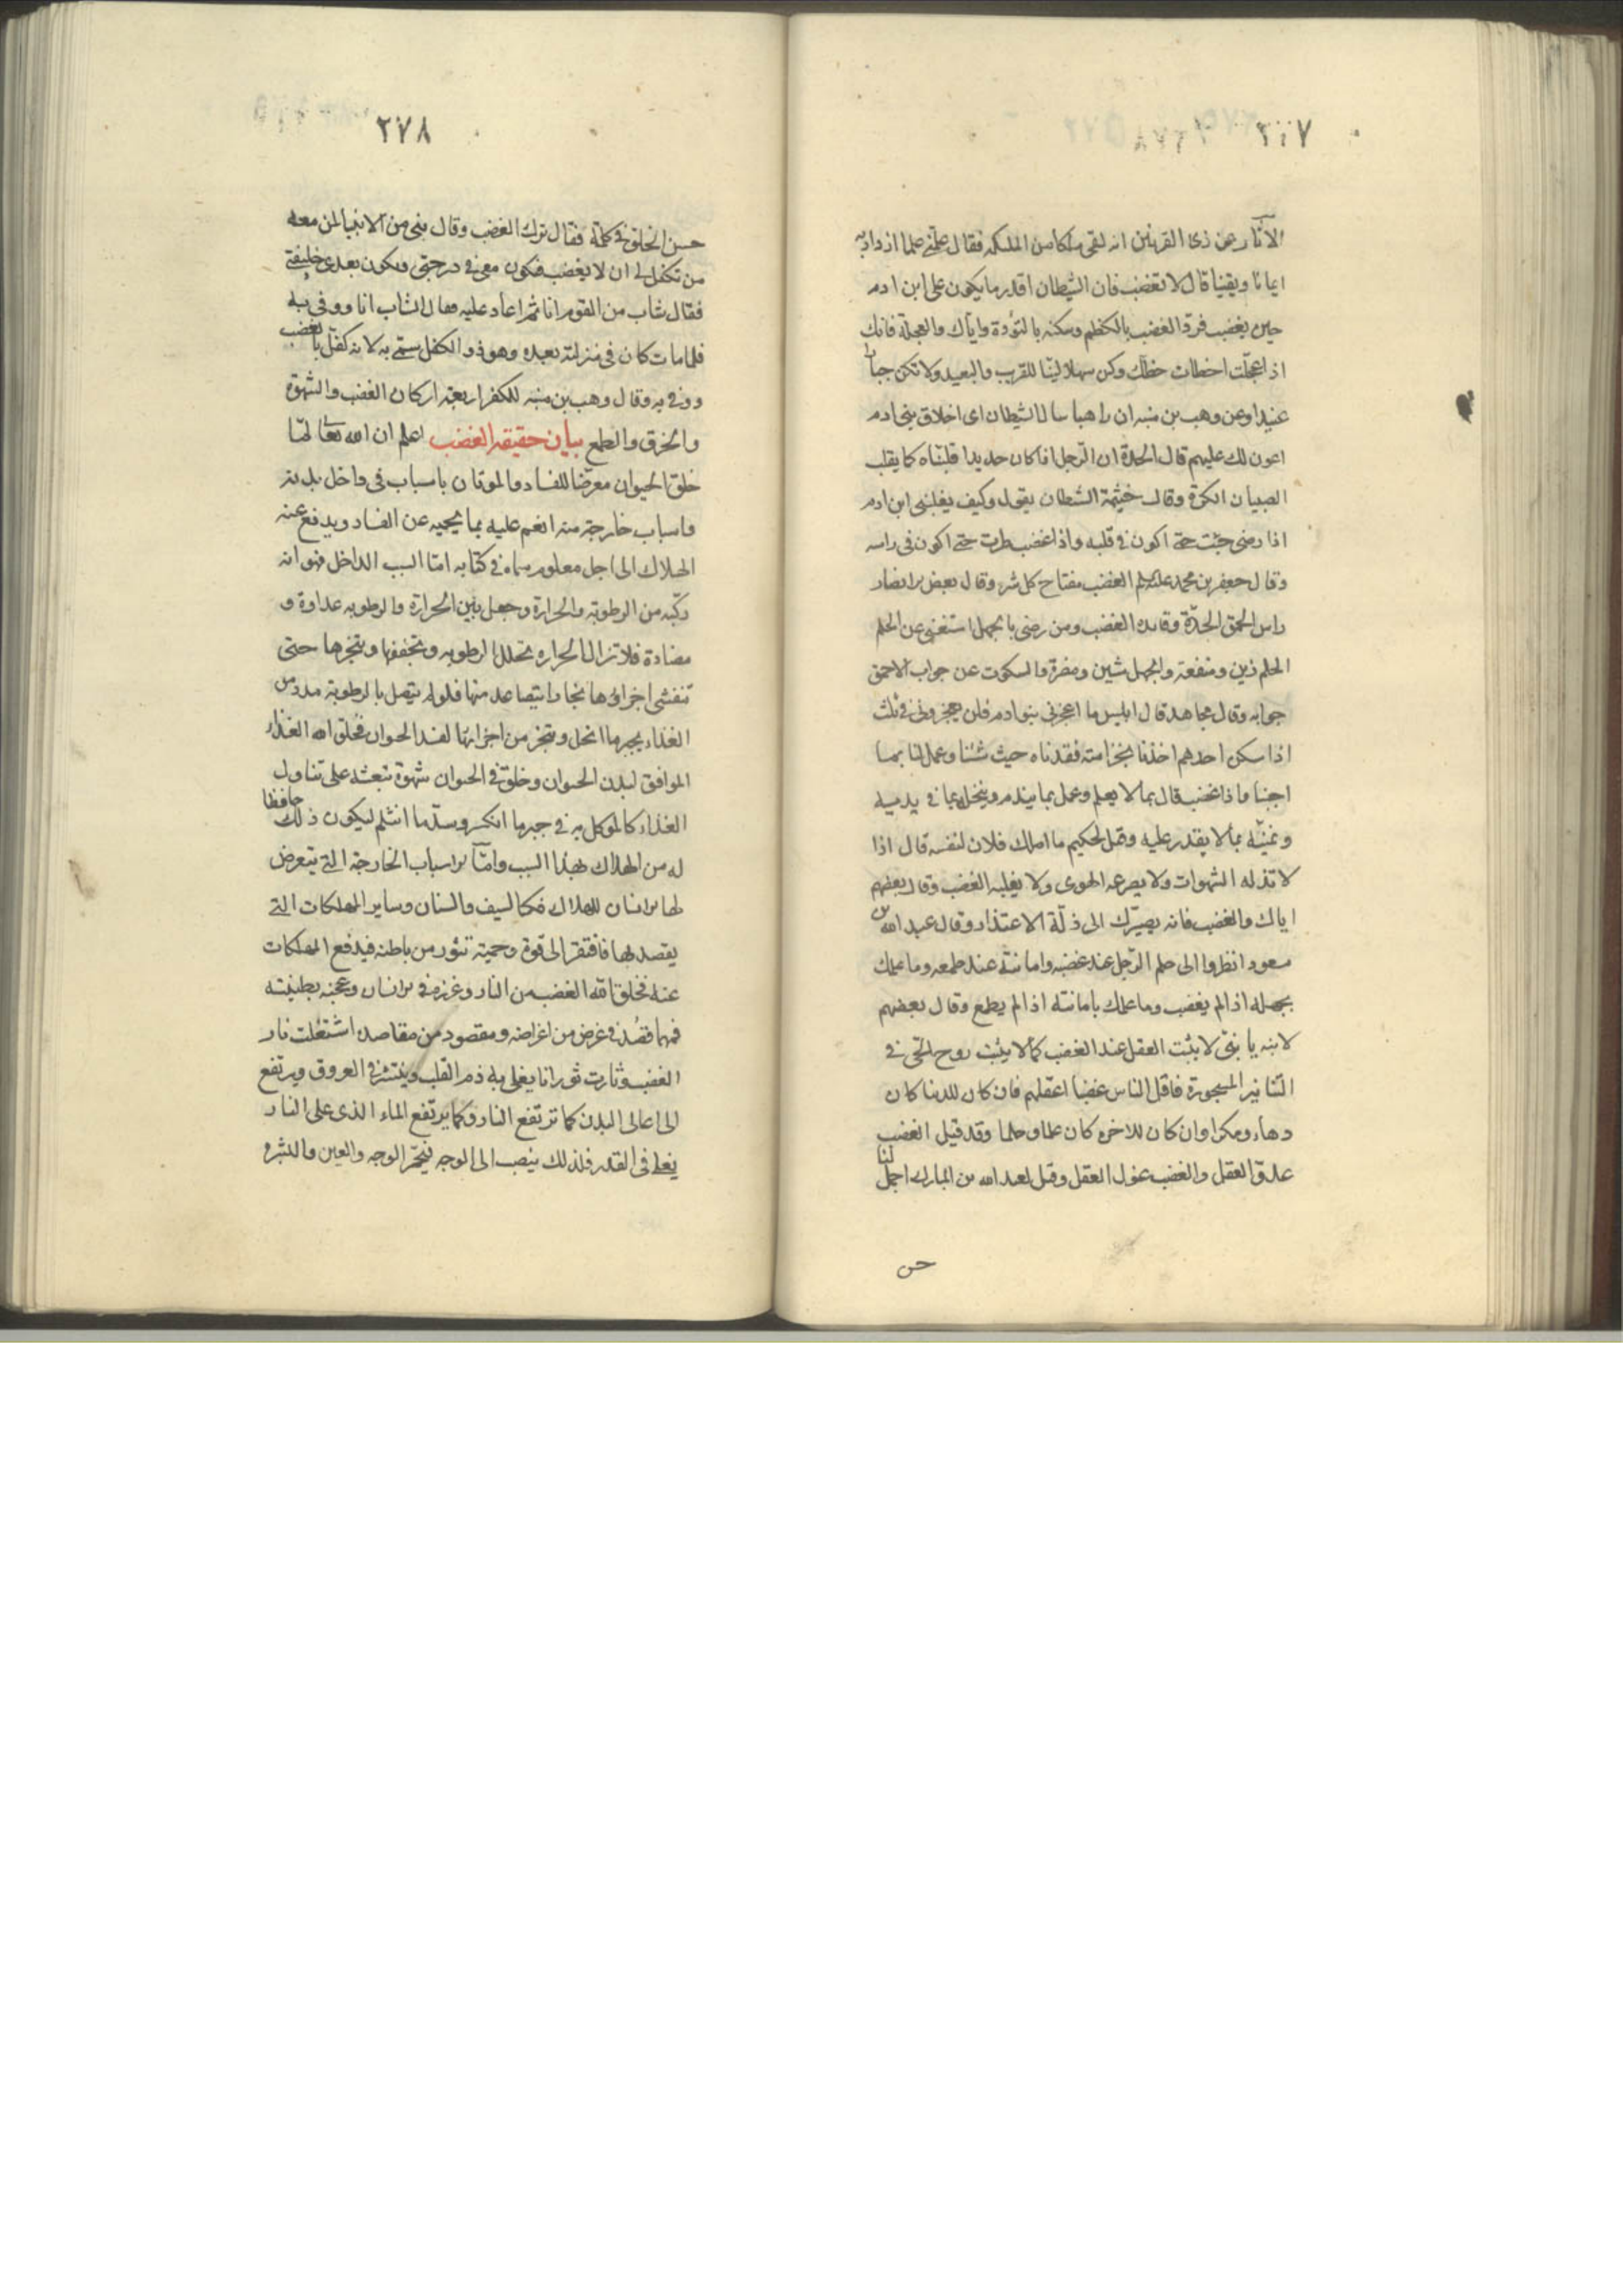 ٢٧٧
الآثار عن ذى القرنين انه لقى ملكا من الملئكه فقال علّمنى علما ازداد به
ايمانا ويقينا قال لا تغضب فان الشيطان اقدر ما يكون على ابن ادم
حين يغضب فردّ الغضب بالكظم وسكنه بالتؤدة واياك والعجلة فانك
اذا عجلت اخطات حظك وكن سهلا لينا للقريب والبعيد ولا تكن جبارا
عنيدا وعن وهب بن منبه ان راهبا سال الشيطان اى اخلاق بنى ادم
اعون لك عليهم قال الحدة ان الرّجل اذا كان حديدا قلبناه كما يقلب
الصبيان الكرة وقال خيثمة الشيطان يقول وكيف يغلبنى ابن ادم
اذا رضى جئت حتى اكون فى قلبه واذا غضب طرت حتى اكون فى راسه
وقال جعفر بن محمد عليه السلم الغضب مفتاح كل شر وقال بعض الانصار
راس الحمق الحدّة وقائده الغضب ومن رضى بالجهل استغنى عن الحلم
الحلم زين ومنفعة والجهل شين ومضرة والسكوت عن جواب الاحمق
جوابه وقال مجاهد قال ابليس ما اعجزنى بنو ادم فلن يعجزونى فى ثلث
اذا سكر احدهم اخذنا بخزامته فقدناه حيث شئنا وعمل لنا بما
احببنا واذا غضب قال بما لا يعلم وعمل بما يندم ويبخل بما فى يديه
ونمنيّه بما لا يقدر عليه وقيل لحكيم ما املك فلان لنفسه قال اذا
لا تذله الشهوات ولا يصرعه الهوى ولا يغلبه الغضب وقال بعضهم
اياك والغضب فانه يصيّرك الى ذلّة الاعتذار وقال عبد الله بن
مسعود انظروا الى حلم الرّجل عند غضبه وامانته عند طمعه وما علمك
بحلمه اذا لم يغضب وما علمك بامانته اذا لم يطمع وقال بعضهم
لابنه يا بنىّ لا يثبت العقل عند الغضب كما لا يثبت روح الحىّ فى
التنانير المسجورة فاقل الناس غضبا اعقلهم فان كان للدنيا كان
دهاء ومكرا وان كان للاخرة كان علما وحلما وقد قيل الغضب
عدوّ العقل والغضب غول العقل وقيل لعبد الله بن المبارك اجمل لنا
حسن
٢٧٨
حسن الخلق فى كلمة فقال ترك الغضب وقال نبى من الانبياء لمن معه
من تكفل لى ان لا يغضب فيكون معى فى درجتى ويكون بعدى خليفتى
فقال شاب من القوم انا ثم اعاد عليه فقال الشاب انا ووفى به
فلما مات كان فى منزلته بعده وهو ذو الكفل سمّى به لانه كفل بالغضب
ووفى به وقال وهب بن منبه للكفر اربعة اركان الغضب والشهوة
والخرق والطمع بيان حقيقة الغضب اعلم ان الله تعالى لمّا
خلق الحيوان معرّضا للفساد والموتان باسباب فى داخل بدنه
واسباب خارجة منه انعم عليه بما يحميه عن الفساد ويدفع عنه
الهلاك الى اجل معلوم سماه فى كتابه امّا السبب الداخل فهو انه
ركّبه من الرطوبة والحرارة وجعل بين الحرارة والرطوبه عداوة و
مضادة فلا تزال الحراره تحلل الرطوبه وتجففها وتبخرها حتى
تتفشى اجزاؤها بخارا يتصاعد منها فلو لم يتصل بالرطوبة مدد من
الغذاء يجبر ما انحل وتبخر من اجزائها لفسد الحيوان فخلق الله الغذاء
الموافق لبدن الحيوان وخلق فى الحيوان شهوة تبعثه على تناول
الغذاء كالموكل به فى جبر ما انكسر وسدّ ما انثلم ليكون ذلك حافظا
له من الهلاك بهذا السبب وامّا الاسباب الخارجة التى يتعرض
لها الانسان للهلاك فكالسيف والسنان وساير المهلكات التى
يقصد بها فافتقر الى قوة وحمية تثور من باطنه فيدفع المهلكات
عنه فخلق الله الغضب من النار وغرزه فى الانسان وعجنه بطينته
فمهما قصد فى غرض من اغراضه ومقصود من مقاصده اشتعلت نار
الغضب وثارت ثورانا يغلى به دم القلب وينتشر فى العروق ويرتفع
الى اعالى البدن كما ترتفع النار وكما يرتفع الماء الذى على النار
يغلى فى القدر فلذلك ينصب الى الوجه فيحمّر الوجه والعين والبشره